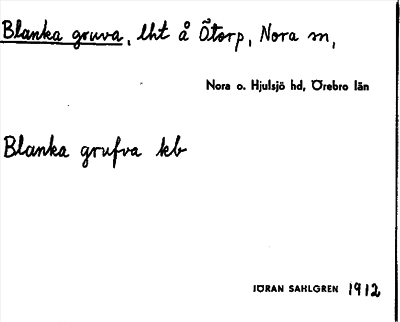 Blanka gruva, lht å Östorp, Nora sn,
Nora o. Hjulsjö hd, Örebro län
Blanka grufva kb
JÖRAN SAHLGREN 1912